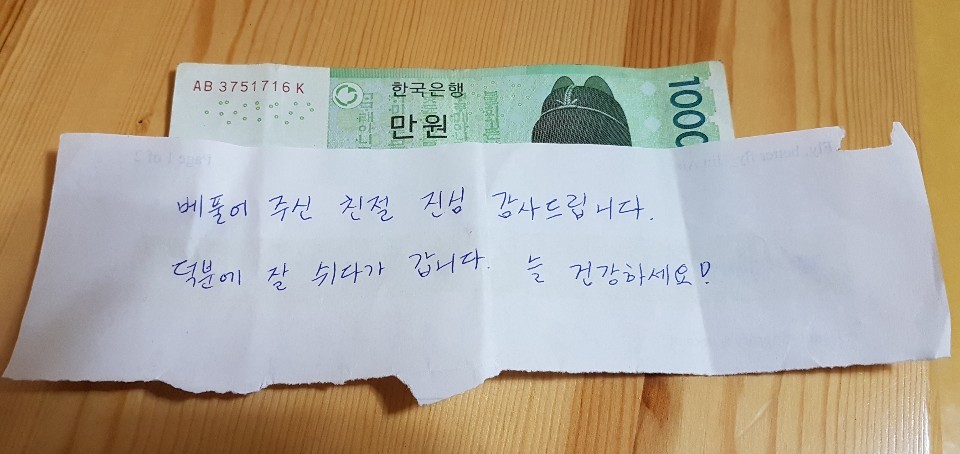 AB 3751716 K
한국은행
만원
1000
베풀어 주신 친절 진심 감사드립니다.
덕분에 잘 쉬다가 갑니다. 늘 건강하세요!
Page 1 of 2
Fly, butterfly